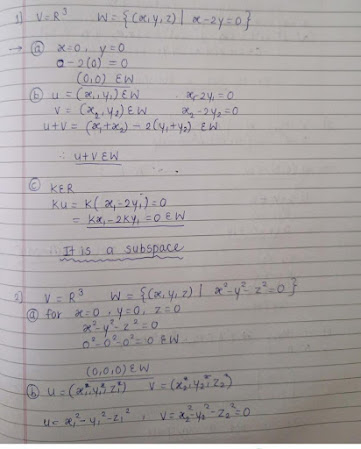 1) V=R³ W = {(x,y,z) | x-2y=0}
→ (a) x=0, y=0
0-2(0) = 0
(0,0) ∈W
(b) u = (x₁,y₁) ∈W x₁-2y₁=0
V = (x₂,y₂) ∈W x₂-2y₂=0
u+V = (x₁+x₂) - 2(y₁+y₂) ∈W
∴ u+V ∈W
(c) K∈R
Ku = K(x₁-2y₁)=0
= Kx₁-2Ky₁ =0 ∈W
It is a subspace
2) V = R³ W = {(x,y,z) | x²-y²-z²=0}
(a) for x=0, y=0, z=0
x²-y²-z²=0
0²-0²-0²=0 ∈W
(0,0,0) ∈W
(b) u = (x₁²,y₁²,z₁²) V = (x₂²,y₂²,z₂²)
u= x₁²-y₁²-z₁², V= x₂²-y₂²-z₂²=0